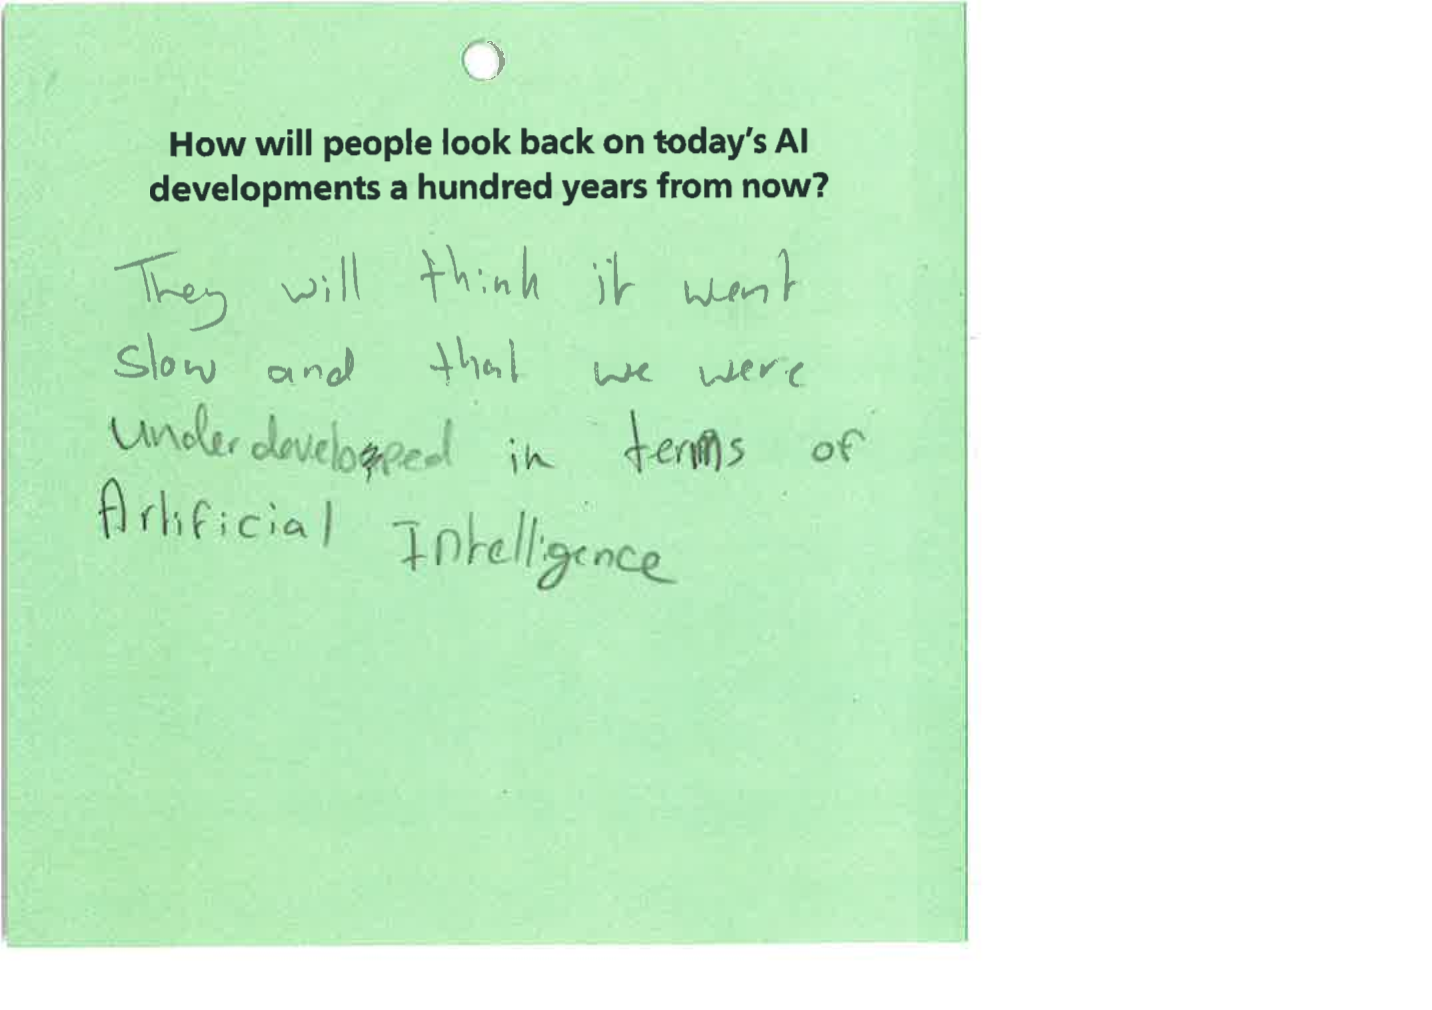 How will people look back on today's AI
developments a hundred years from now?
They will think it went
slow and that we were
underdeveloped in terms of
Artificial Intelligence